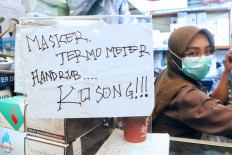 MASKER,
TERMOMETER
HANDRUB....
KOSONG!!!